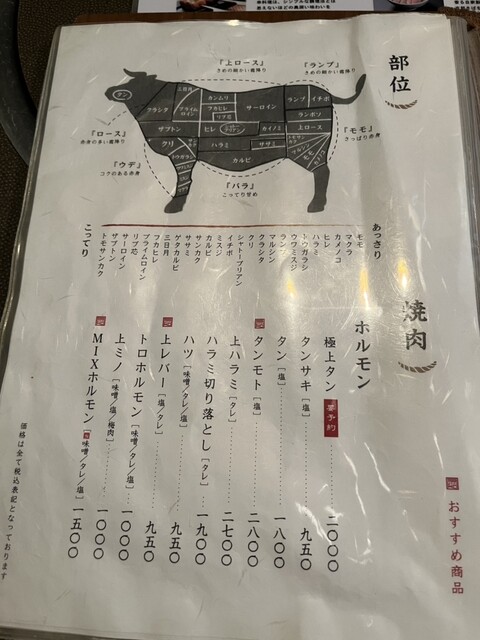 部位
『上ロース』
きめの細かい霜降り
『ランプ』
きめの細かい霜降り
『ロース』
赤身の多い霜降り
『ウデ』
コクのある赤身
『バラ』
こってり甘め
『モモ』
さっぱり赤身
タン
クラシタ
三日月
プライムロイン
カンムリ
フカヒレ
リブ芯
サーロイン
ランプ
イチボ
ザブトン
ヒレ
カイノミ
ランボソ
上ロース
クリ
ハラミ
ササミ
カルビ
トウガラシ
モモ
あっさり
モモ
マクラ
カメノコ
ヒレ
ハラミ
トウガラシ
ウワミスジ
ランプ
マルシン
クラシタ
クリ
シャトーブリアン
イチボ
ミスジ
カルビ
サンカク
ササミ
ゲタカルビ
三日月
フカヒレ
プライムロイン
リブ芯
サーロイン
ザブトン
トモサンカク
こってり
焼肉
ホルモン
極上タン 要予約 二〇〇〇
タンサキ[塩] 九五〇
タン[塩] 一八〇〇
タンモト[塩] 二八〇〇
上ハラミ[タレ] 二七〇〇
ハラミ切り落とし[タレ] 一九〇〇
ハツ[味噌/タレ/塩] 九五〇
上レバー[塩/タレ] 九五〇
トロホルモン[味噌/タレ/塩] 一〇〇〇
上ミノ[味噌/タレ/塩/梅肉] 一〇〇〇
MIXホルモン[味噌/タレ/塩] 一五〇〇
おすすめ商品
価格は全て税込表記となっております